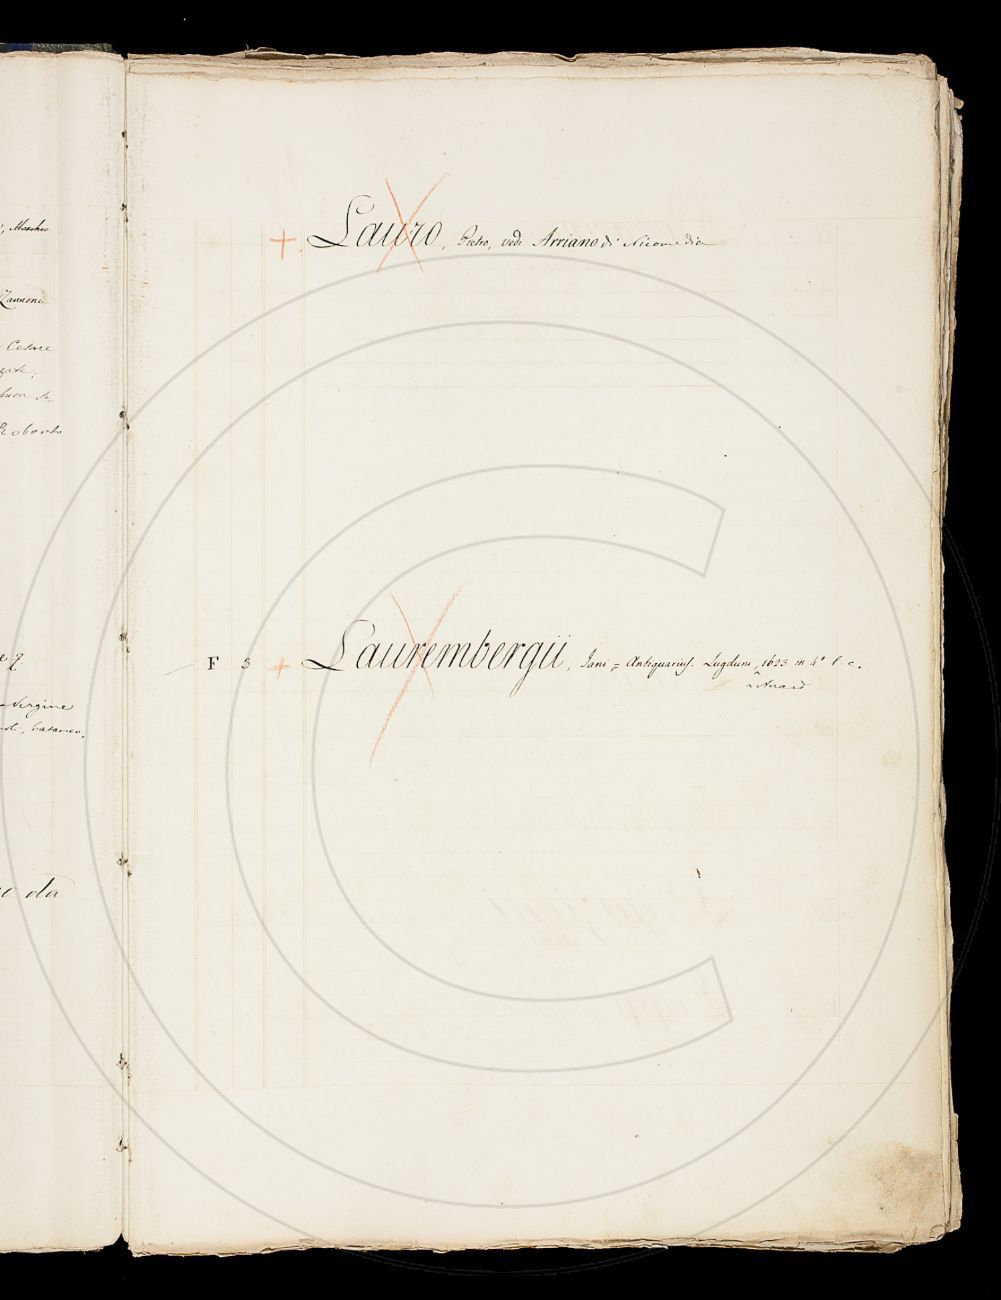 Marchio
Zannoni
Cesare
buon
Roberto
Vergine
da
+ Lauro, Pietro, vedi Arriano di Nicomedia
F 3 + Laurembergii, Jani = Antiquarius. Lugduni, 1623 in 4° l. c.